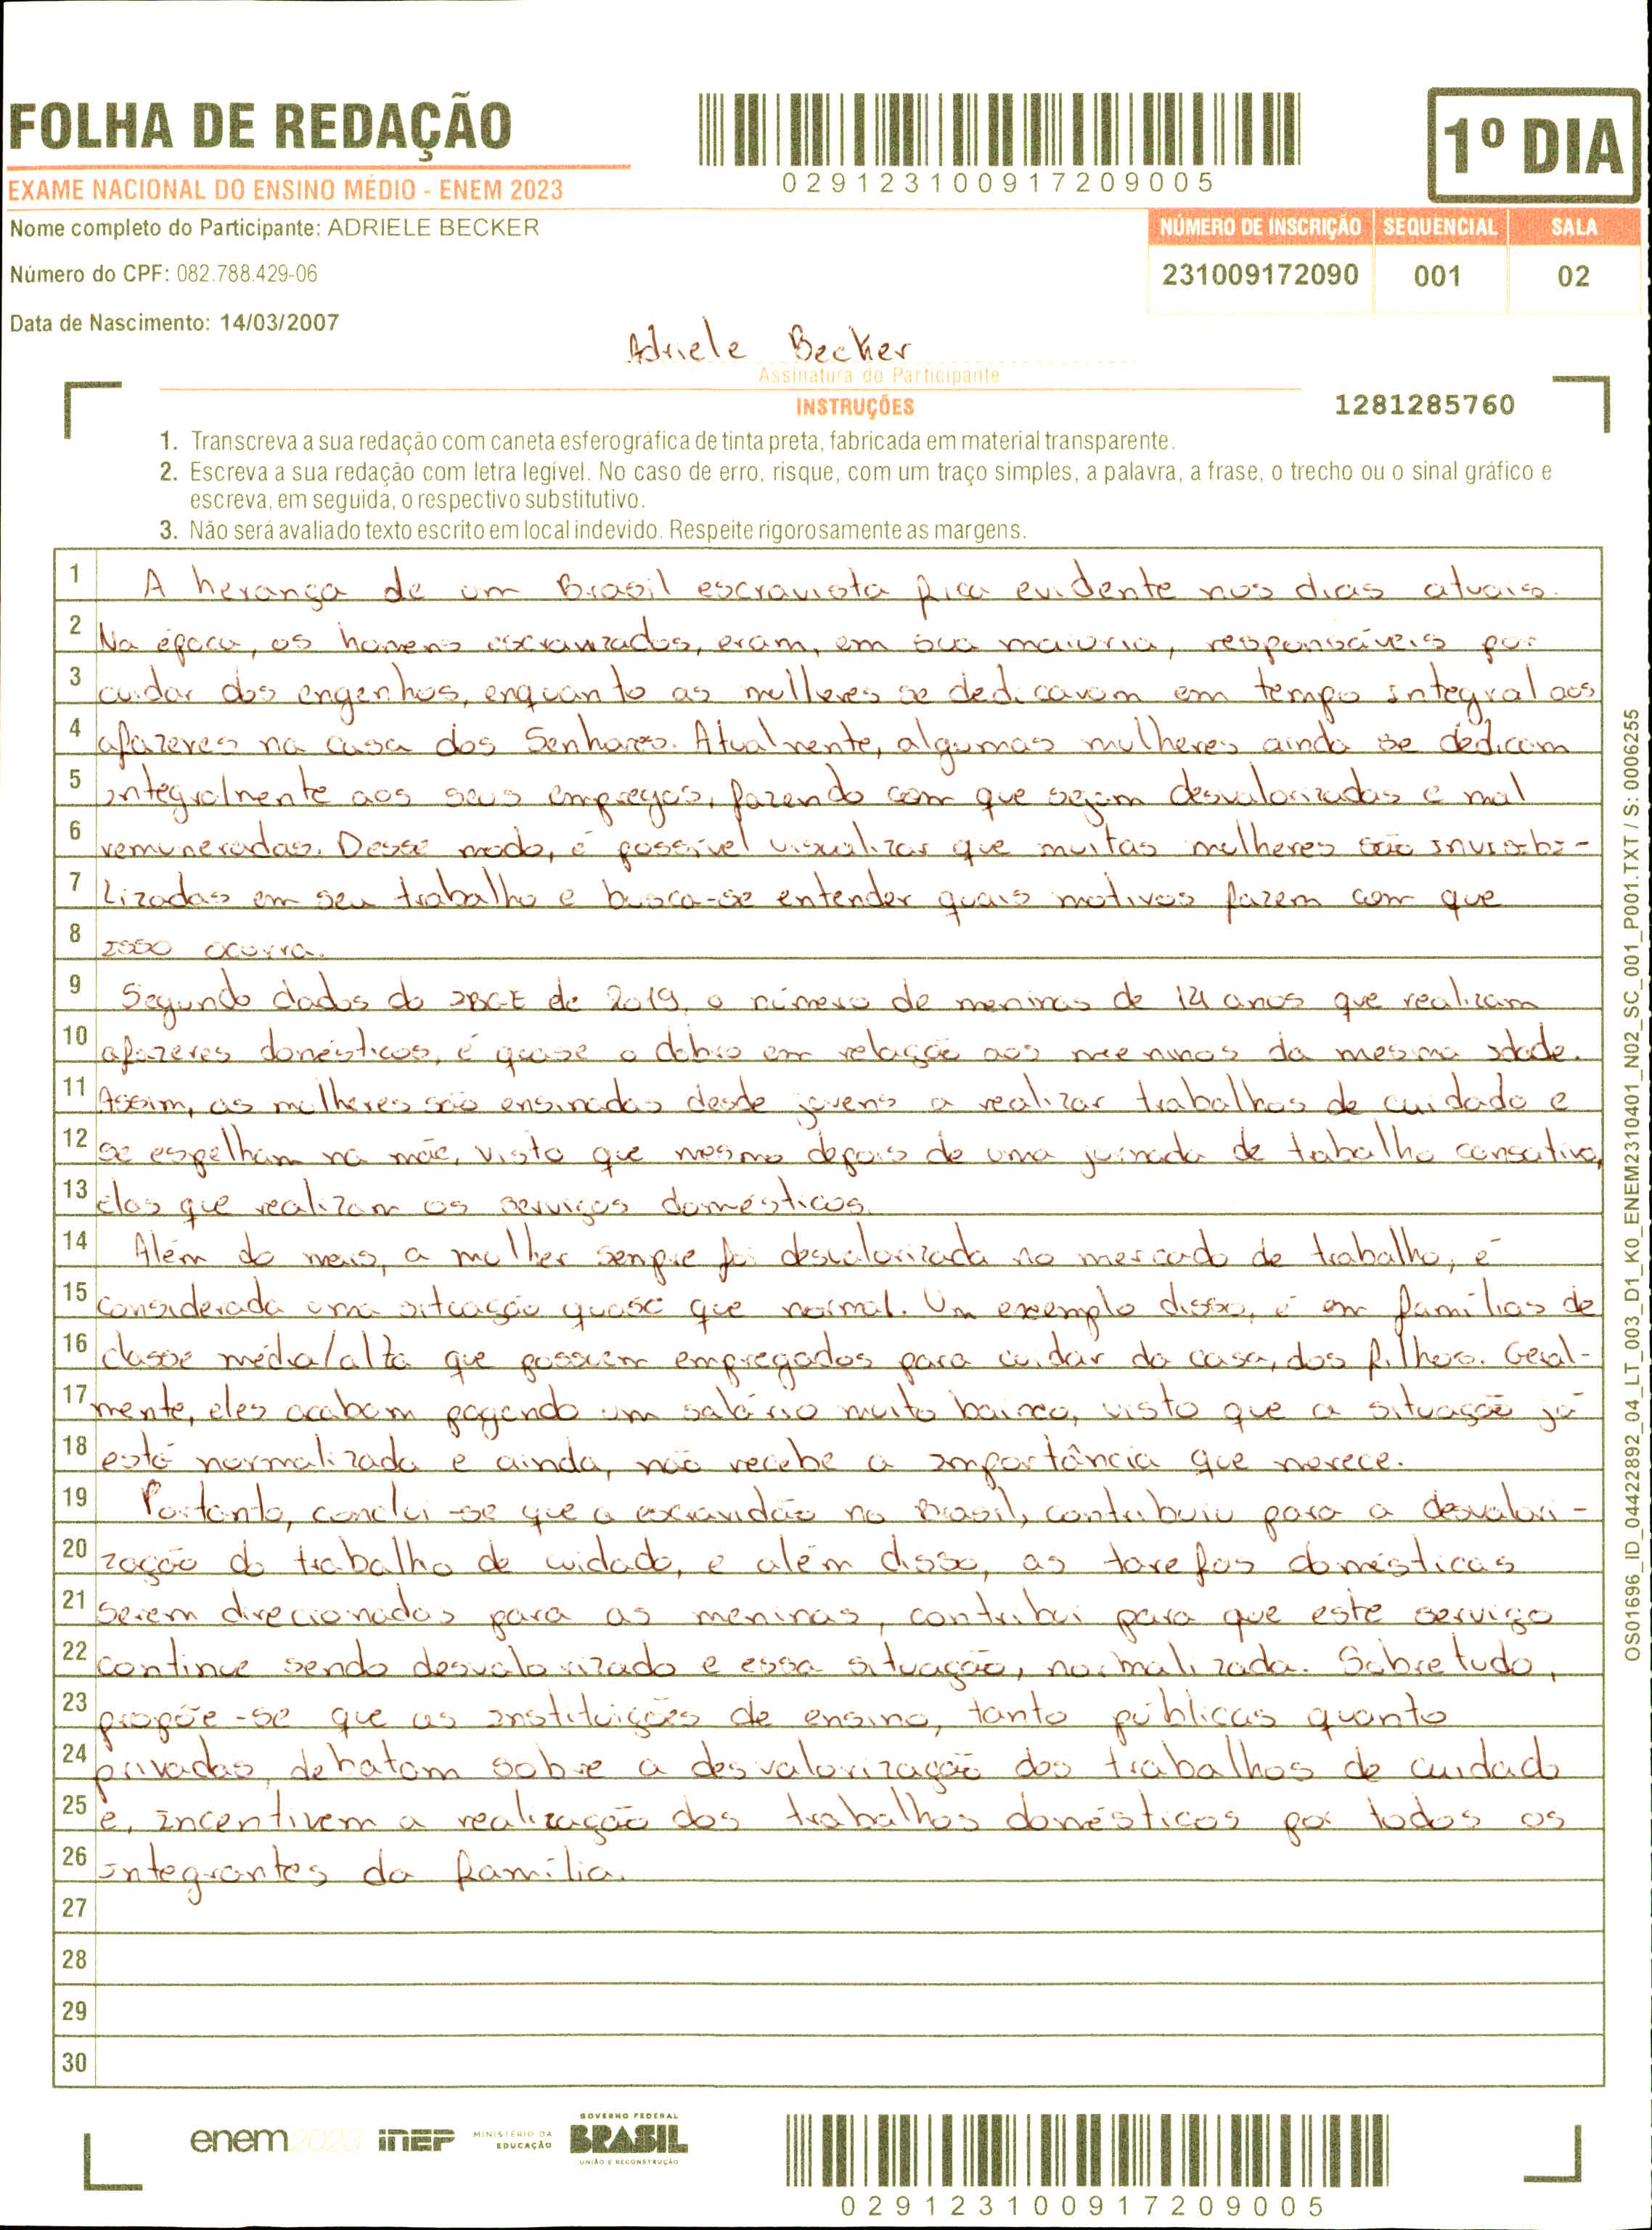 FOLHA DE REDAÇÃO
EXAME NACIONAL DO ENSINO MÉDIO - ENEM 2023
029123100917209005
1º DIA
Nome completo do Participante: ADRIELE BECKER
Número do CPF: 082.788.429-06
Data de Nascimento: 14/03/2007
NÚMERO DE INSCRIÇÃO SEQUENCIAL SALA
231009172090 001 02
Adriele Becker
Assinatura do Participante
INSTRUÇÕES
1281285760
1. Transcreva a sua redação com caneta esferográfica de tinta preta, fabricada em material transparente.
2. Escreva a sua redação com letra legível. No caso de erro, risque, com um traço simples, a palavra, a frase, o trecho ou o sinal gráfico e
escreva, em seguida, o respectivo substitutivo.
3. Não será avaliado texto escrito em local indevido. Respeite rigorosamente as margens.
1 A herança de um Brasil escravista fica evidente nos dias atuais.
2 Na época, os homens escravizados, eram, em sua maioria, responsáveis por
3 cuidar dos engenhos, enquanto as mulheres se dedicavam em tempo integral aos
4 afazeres na casa dos Senhores. Atualmente, algumas mulheres ainda se dedicam
5 integralmente aos seus empregos, fazendo com que sejam desvalorizadas e mal
6 remuneradas. Desse modo, é possível visualizar que muitas mulheres são invisibi-
7 lizadas em seu trabalho e busca-se entender quais motivos fazem com que
8 isso ocorra.
9 Segundo dados do IBGE de 2019, o número de meninas de 14 anos que realizam
10 afazeres domésticos, é quase o dobro em relação aos meninos da mesma idade.
11 Assim, as mulheres são ensinadas desde jovens a realizar trabalhos de cuidado e
12 se espelham na mãe, visto que mesmo depois de uma jornada de tabalho cansativa,
13 elas que realizam os serviços domésticos.
14 Além do mais, a mulher sempre foi desvalorizada no mercado de trabalho, é
15 considerada uma situação quase que normal. Um exemplo disso, é em famílias de
16 classe média/alta que possuem empregados para cuidar da casa, dos filhos. Geral-
17 mente, eles acabam pagando um salário muito baixo, visto que a situação já
18 está normalizada e ainda, não recebe a importância que merece.
19 Portanto, conclui-se que a escravidão no Brasil, contribuiu para a desvalori-
20 zação do trabalho de cuidado, e além disso, as tarefas domésticas
21 serem direcionadas para as meninas, contribui para que este serviço
22 continue sendo desvalorizado e essa situação, normalizada. Sobretudo,
23 propõe-se que as instituições de ensino, tanto públicas quanto
24 privadas, debatam sobre a desvalorização dos trabalhos de cuidado
25 e, incentivem a realização dos trabalhos domésticos por todos os
26 integrantes da família.
27
28
29
30
OS01696_ID_04422892_04_LT_003_D1_K0_ENEM2310401_N02_SC_001_P001.TXT / S: 0006255
enem2023 inep MINISTÉRIO DA EDUCAÇÃO GOVERNO FEDERAL BRASIL UNIÃO E RECONSTRUÇÃO
029123100917209005